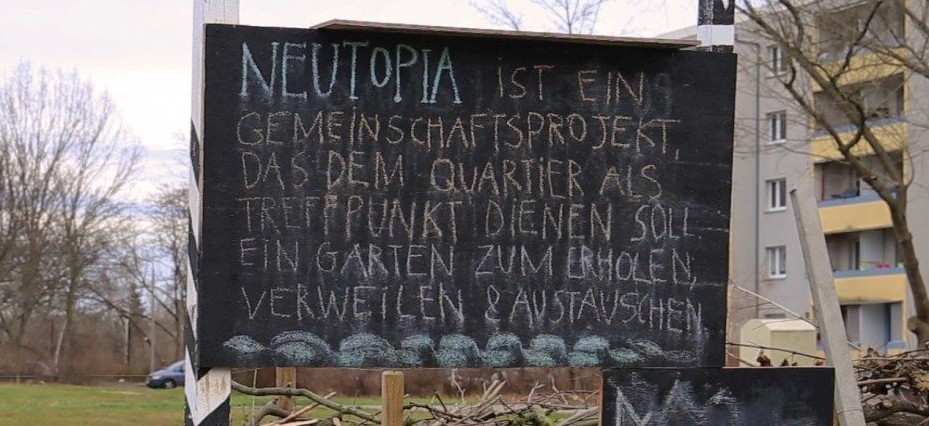 NEUTOPIA IST EIN
GEMEINSCHAFTSPROJEKT,
DAS DEM QUARTIER ALS
TREFFPUNKT DIENEN SOLL
EIN GARTEN ZUM ERHOLEN,
VERWEILEN & AUSTAUSCHEN